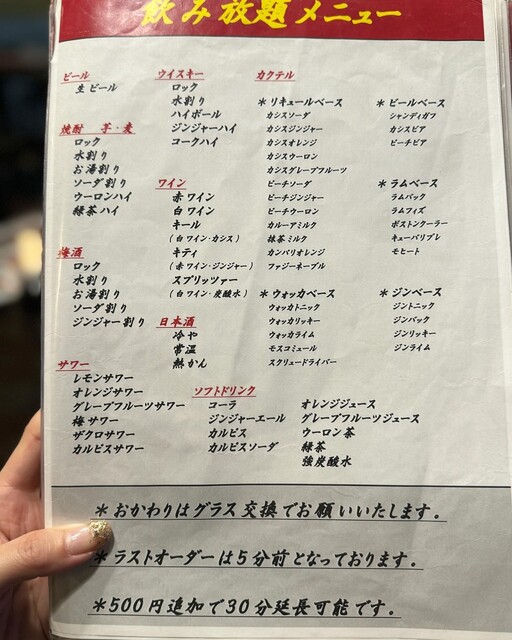 飲み放題メニュー
ビール
生ビール
焼酎 芋・麦
ロック
水割り
お湯割り
ソーダ割り
ウーロンハイ
緑茶ハイ
梅酒
ロック
水割り
お湯割り
ソーダ割り
ジンジャー割り
サワー
レモンサワー
オレンジサワー
グレープフルーツサワー
梅サワー
ザクロサワー
カルピスサワー
ウイスキー
ロック
水割り
ハイボール
ジンジャーハイ
コークハイ
ワイン
赤ワイン
白ワイン
キール
(白ワイン・カシス)
キティ
(赤ワイン・ジンジャー)
スプリッツァー
(白ワイン・炭酸水)
日本酒
冷や
常温
熱かん
カクテル
＊リキュールベース
カシスソーダ
カシスジンジャー
カシスオレンジ
カシスウーロン
カシスグレープフルーツ
ピーチソーダ
ピーチジンジャー
ピーチウーロン
カルーアミルク
抹茶ミルク
カンパリオレンジ
ファジーネーブル
＊ウォッカベース
ウォッカトニック
ウォッカリッキー
ウォッカライム
モスコミュール
スクリュードライバー
＊ビールベース
シャンディガフ
カシスビア
ピーチビア
＊ラムベース
ラムバック
ラムフィズ
ボストンクーラー
キューバリブレ
モヒート
＊ジンベース
ジントニック
ジンバック
ジンリッキー
ジンライム
ソフトドリンク
コーラ
ジンジャーエール
カルピス
カルピスソーダ
オレンジジュース
グレープフルーツジュース
ウーロン茶
緑茶
強炭酸水
＊おかわりはグラス交換でお願いいたします。
＊ラストオーダーは5分前となっております。
＊500円追加で30分延長可能です。